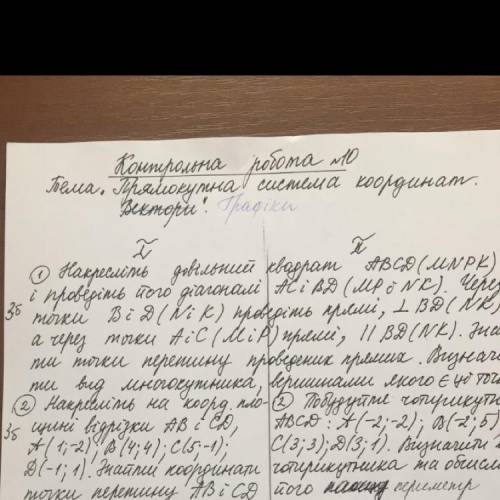 Контрольна робота №10
Тема „Прямокутна система координат.
Вектори". Графіки
I
II
① Накресліть довільний квадрат ABCD (MNPK)
і проведіть його діагоналі AC і BD (MP і NK). Через
точки B і D (N і K) проведіть прямі, ⊥ BD (NK)
а через точки A і C (M і P) прямі, || BD (NK). Зна
3б
ти точки перетину проведених прямих. Визначі
ти вид многокутника, вершинами якого є ці точ
② Накресліть на коорд. пло-
щині відрізки AB і CD,
3б
A(1;-2); B(4;4); C(5;-1);
D(-1;1). Знайти координати
точки перетину AB і CD
② Побудуйте чотирикутн
ABCD: A(-2;-2); B(-2;5)
C(3;3); D(3;1). Визначіть
чотирикутника та обчисл
його периметр